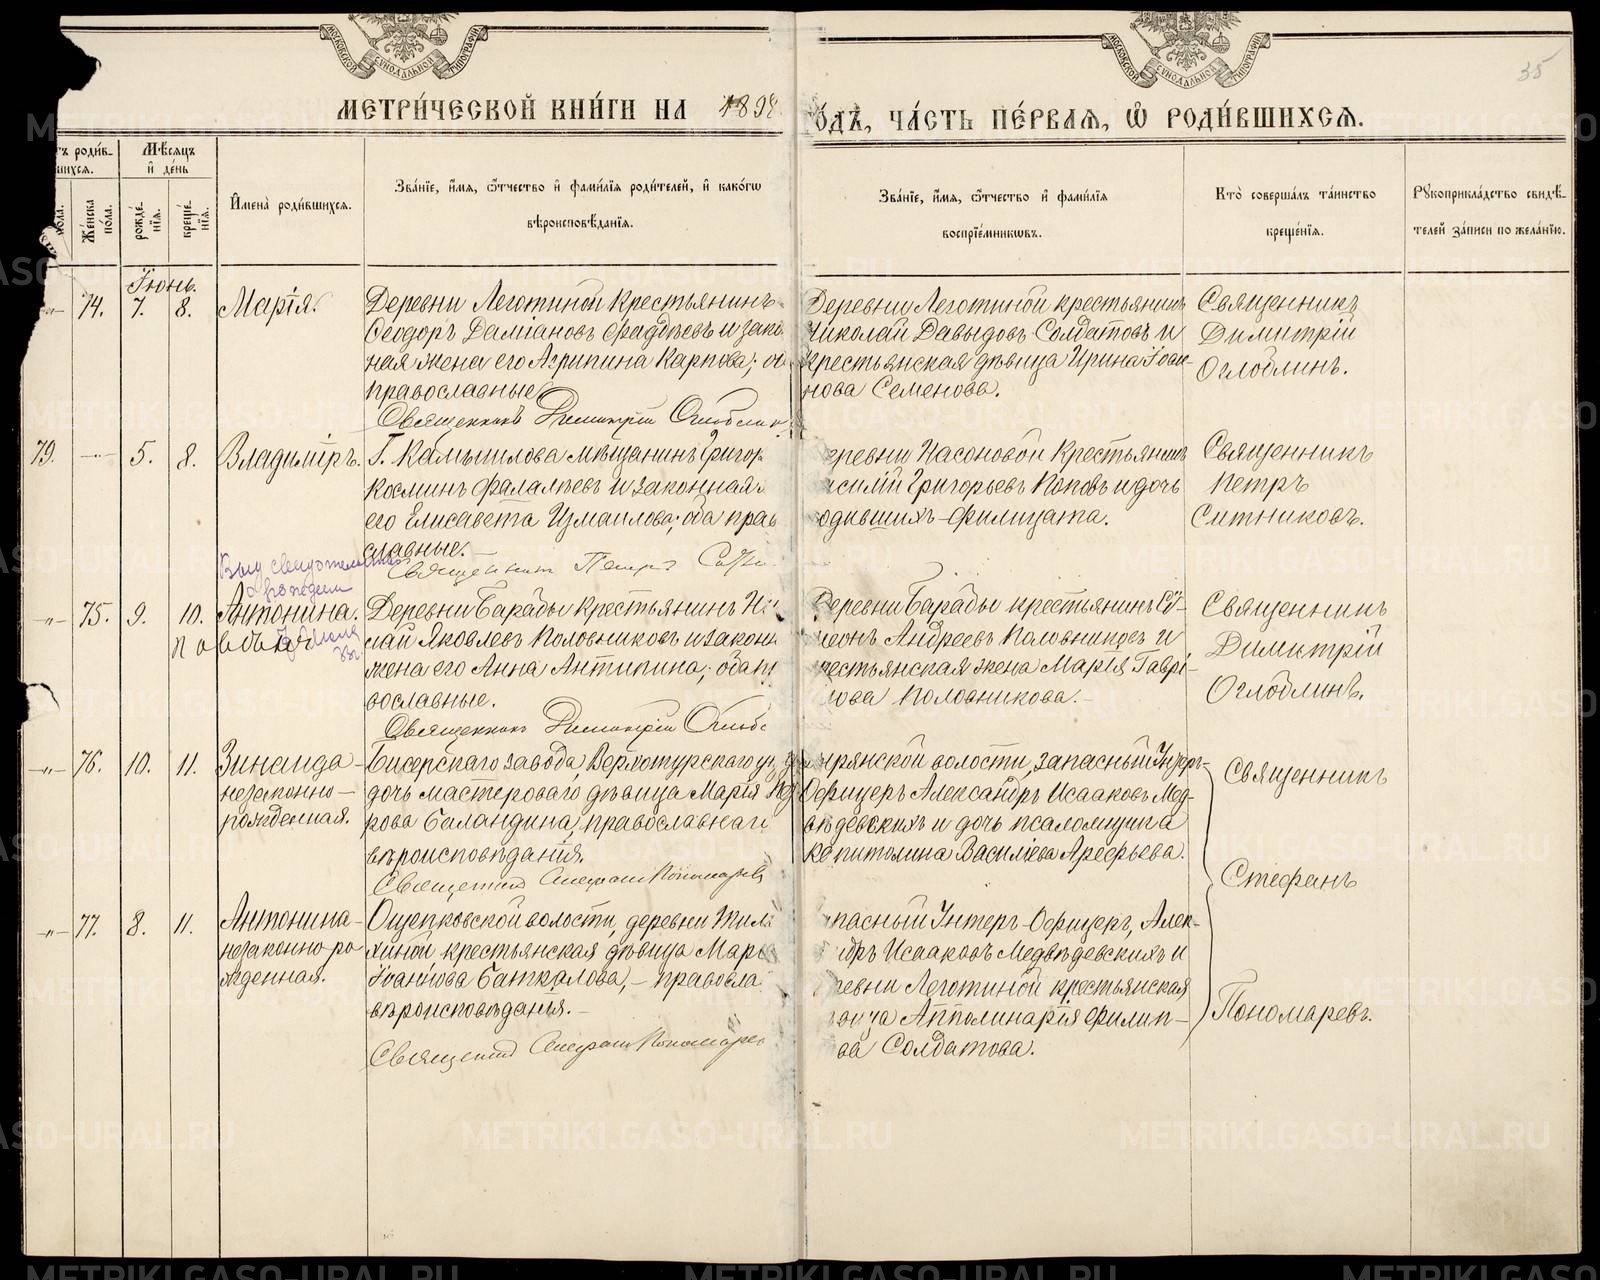 МОСКОВСКОЙ СѴНОДАЛЬНОЙ ТИПОГРАФІИ
МОСКОВСКОЙ СѴНОДАЛЬНОЙ ТИПОГРАФІИ
35
МЕТРИ́ЧЕСКОЙ КНИ́ГИ НА 1898
О́ДЪ, ЧА́СТЬ ПЕ́РВАЯ, Ѡ РОДИ́ВШИХСЯ.
тъ роди́в-
шихся.
Мѣсяцъ
и де́нь
Же́нска по́ла.
рожде́нїя.
креще́нїя.
Имена̀ роди́вшихся.
Зва́нїе, и́мя, ѻ҆́тчество и фами́лїя роди́телей, и како́гѡ
вѣроисповѣ́данїя.
Зва́нїе, и́мя, ѻ҆́тчество и фами́лїя
воспрїе́мникѡвъ.
Кто̀ соверша́лъ та́инство
креще́нїя.
Рꙋкоприкла́дство свидѣ́-
телей за́писи по жела́нїю.
Іюнь.
-"- 74. 7. 8. Марія.
Деревни Леготиной крестьянинъ
Ѳеодоръ Даміановъ Фаддѣевъ и зако
ная жена его Агрипина Карпова; о
православные
Священникъ Димитрій Оглоблин
Деревни Леготиной крестьянинъ
Николай Давыдовъ Солдатовъ и
крестьянская дѣвица Ирина Іоан-
нова Семенова.
Священникъ
Димитрій
Оглоблинъ.
79. -"- 5. 8. Владиміръ.
Г. Камышлова мѣщанинъ Григор
Космин Фалалѣевъ и законная
его Елисавета Измаилова; оба прав
славные.
Священникъ Петръ Ситн
еревни Насоновой крестьянинъ
асилій Григорьевъ Поповъ и дочь
одившихъ Филицата.
Священникъ
Петръ
Ситниковъ.
-"- 75. 9. 10. Антонина.
Деревни Барабы крестьянинъ Ни
лай Яковлевъ Половниковъ и законн
жена его Анна Антипина; оба пр
вославные.
Священникъ Димитрій Оглоб
Деревни Барабы крестьянинъ Си-
меонъ Андреевъ Половниковъ и
рестьянская жена Марія Гаврі-
лова Половникова.-
Священникъ
Димитрій
Оглоблинъ.
-"- 76. 10. 11. Зинаида
незаконно-
рожденная.
Бисерскаго завода, Верхотурскаго у
дочь мастероваго дѣвица Марія
рова Баландина, православнаг
вѣроисповѣданія.
Священникъ Стефанъ Пономарев
волости, запасный Унтеръ-
Офицеръ Александръ Исааковъ Мед-
вѣдевскихъ и дочь псаломщика
Капитолина Василіева Арефьева.
Священникъ
Стефанъ
Пономаревъ.
-"- 77. 8. 11. Антонина-
незаконно-ро
жденная.
Ощепковской волости, деревни
хиной крестьянская дѣвица Марі
Іоаннова Баткалова,- правосла
вѣроисповѣданія.-
Священникъ Стефанъ Пономарев
пасный Унтеръ-Офицеръ, Алек-
ндръ Исааковъ Медвѣдевскихъ и
ревни Леготиной крестьянская
вица Апполинарія Филип-
ва Солдатова.
METRIKI.GASO-URAL.RU